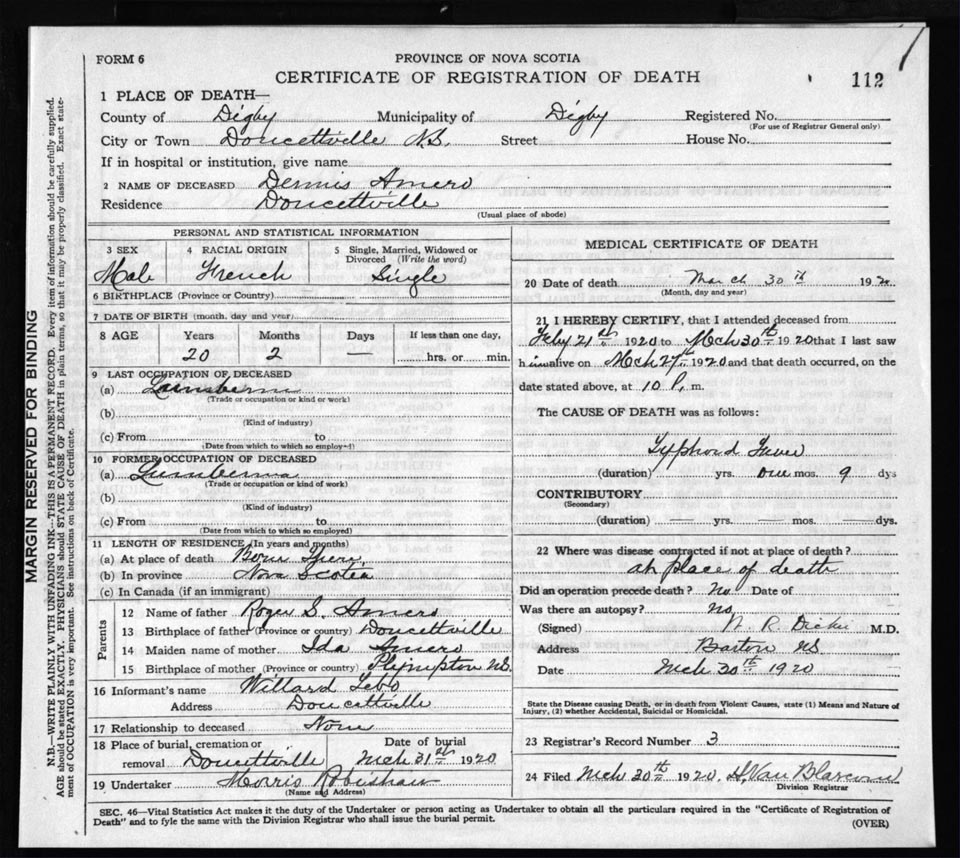 FORM 6
PROVINCE OF NOVA SCOTIA
CERTIFICATE OF REGISTRATION OF DEATH
112
1 PLACE OF DEATH—
County of Digby Municipality of Digby Registered No.
(For use of Registrar General only)
City or Town Doucettville N.S. Street House No.
If in hospital or institution, give name
2 NAME OF DECEASED Dennis Amero
Residence Doucettville
(Usual place of abode)
PERSONAL AND STATISTICAL INFORMATION
3 SEX 4 RACIAL ORIGIN 5 Single, Married, Widowed or Divorced (Write the word)
Male French Single
6 BIRTHPLACE (Province or Country)
7 DATE OF BIRTH (month, day and year)
8 AGE Years Months Days If less than one day,
20 2 — hrs. or min.
9 LAST OCCUPATION OF DECEASED
(a) Lumberman
(Trade or occupation or kind or work)
(b)
(Kind of industry)
(c) From to
(Date from which to which so employed)
10 FORMER OCCUPATION OF DECEASED
(a) Lumberman
(Trade or occupation or kind of work)
(b)
(Kind of industry)
(c) From to
(Date from which to which so employed)
11 LENGTH OF RESIDENCE (In years and months)
(a) At place of death Born
(b) In province Nova Scotia
(c) In Canada (if an immigrant)
Parents
12 Name of father Roger S. Amero
13 Birthplace of father (Province or country) Doucettville
14 Maiden name of mother Ida Amero
15 Birthplace of mother (Province or country) Plympton NS
16 Informant's name Willard
Address Doucettville
17 Relationship to deceased None
18 Place of burial, cremation or Date of burial
removal Doucettville Mch 31st 1920
19 Undertaker Morris Robishaw
(Name and Address)
MEDICAL CERTIFICATE OF DEATH
20 Date of death March 30th 1920
(Month, day and year)
21 I HEREBY CERTIFY, that I attended deceased from
Feby 21st 1920 to Mch 30th 1920 that I last saw
him alive on Mch 27th 1920 and that death occurred, on the
date stated above, at 10 P. m.
The CAUSE OF DEATH was as follows:
Typhoid Fever
(duration) yrs. one mos. 9 dys
CONTRIBUTORY
(Secondary)
(duration) — yrs. — mos. — dys.
22 Where was disease contracted if not at place of death?
at place of death
Did an operation precede death? No Date of
Was there an autopsy? no
(Signed) W. R. Dickie M.D.
Address Barton NS
Date Mch 30th 1920
State the Disease causing Death, or in death from Violent Causes, state (1) Means and Nature of
Injury, (2) whether Accidental, Suicidal or Homicidal.
23 Registrar's Record Number 3
24 Filed Mch 30th 1920. H. Van Blarcom
Division Registrar
SEC. 46—Vital Statistics Act makes it the duty of the Undertaker or person acting as Undertaker to obtain all the particulars required in the "Certificate of Registration of
Death" and to fyle the same with the Division Registrar who shall issue the burial permit.
(OVER)
MARGIN RESERVED FOR BINDING
N.B.—WRITE PLAINLY WITH UNFADING INK—THIS IS A PERMANENT RECORD. Every item of information should be carefully supplied.
AGE should be stated EXACTLY. PHYSICIANS should STATE CAUSE OF DEATH in plain terms, so that it may be properly classified. Exact state-
ment of OCCUPATION is very important. See instructions on back of Certificate.